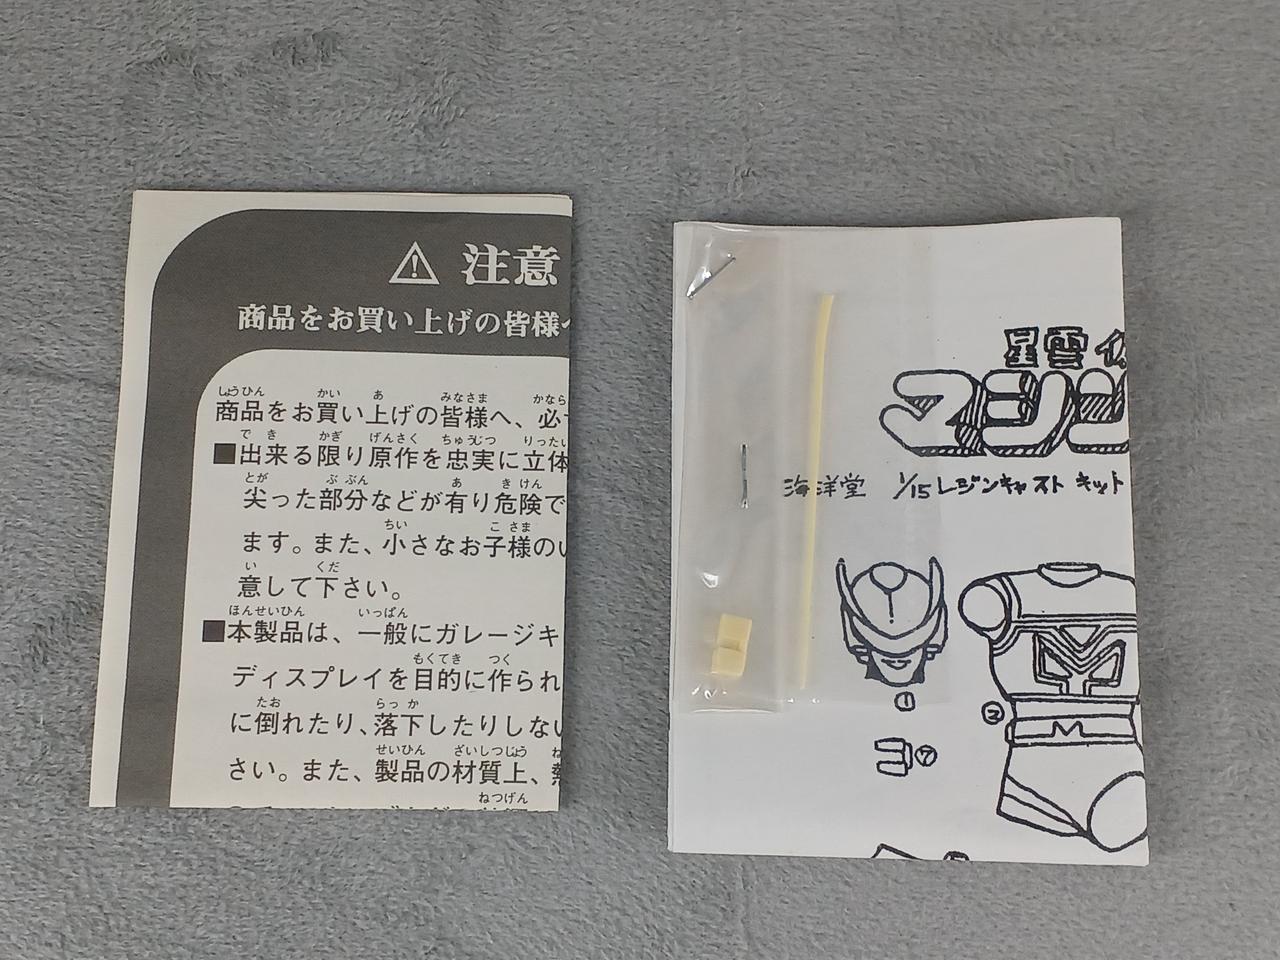 注意
商品をお買い上げの皆様へ
しょうひん かい あ みなさま かなら
商品をお買い上げの皆様へ、必ず
で き かぎ げんさく ちゅうじつ りったい
■出来る限り原作を忠実に立体
とが ぶ ぶん あ き けん
尖った部分などが有り危険で
ちい こ さま
ます。また、小さなお子様のい
い くだ
意して下さい。
ほんせいひん いっぱん
■本製品は、一般にガレージキ
もくてき つく
ディスプレイを目的に作られ
たお らっ か
に倒れたり、落下したりしない
せいひん ざいしつじょう
さい。また、製品の材質上、熱
ねつげん
星雲
マシン
海洋堂 1/15 レジンキャスト キット
①
②
⑦
M